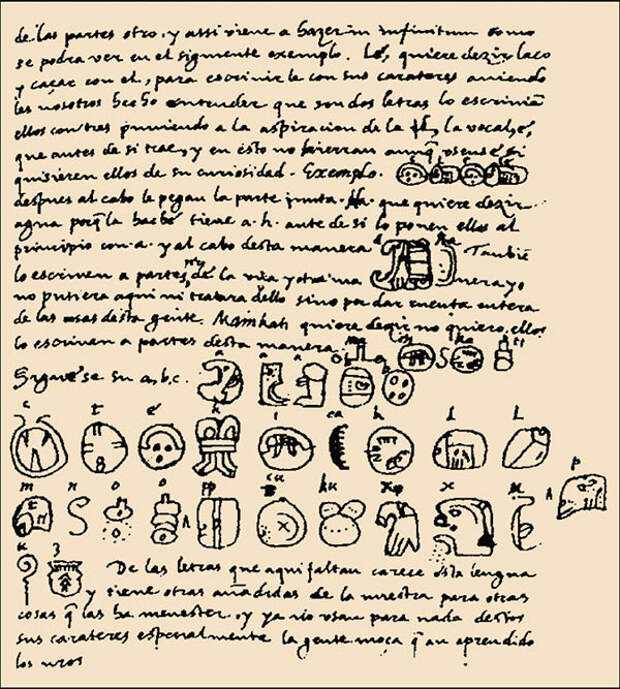 de las partes otro, y assi viene a hazer in infinitum como
se podra ver en el siguiente exemplo. Lé, quiere dezir laço
y caçar con el, para escrivirle con sus carateres aviendo
les nosotros hecho entender que son dos letras lo escrivian
ellos con tres puniendo a la aspiracion de la l, la vocal, é,
que antes de si trae, y en esto no hierran aunq̃ usense si
quisieren ellos de su curiosidad. Exemplo. e l e
despues al cabo le pegan la parte junta. Ha. que quiere dezir
agua porq̃ la haché tiene a. h. ante de si lo ponen ellos al
principio con a. y al cabo desta manera a ha Tambiē
lo escriven a partes de la una y otra ma nera yo
no pusiera aqui ni tratara dello sino por dar cuenta entera
de las cosas desta gente. Mainkati quiere dezir no quiero, ellos
lo escriven a partes desta manera. ma i n ka ti
Siguese su a, b, c. a a a b b
c t é h i ca k l l
m n o o pp p cu ku x x u
u z
De las letras que aqui faltan carece esta lengua
y tiene otras añadidas de la nuestra para otras
cosas q̃ las ha menester. y ya no usan para nada destos
sus carateres especialmente la gente moça q̃ an aprendido
los nros